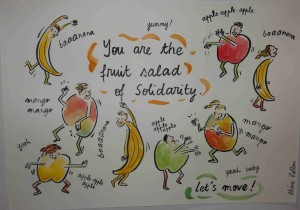 yummy!
apple-apple-apple
baaanana
You are the
fruit salad
of Solidarity.
baaanana
mango
mango
baaanana
apple
apple
apple
mango
mango
yeah
apple apple
apple
yeah baby
Let's move!